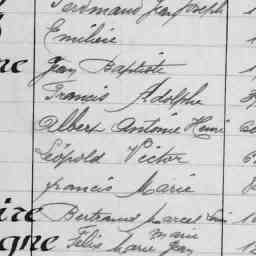 Ferdinand Jean Joseph
Emilien
Jean Baptiste
Francis Adolphe
Albert Antoine Henri
Léopold Victor
francis Marie
Bertrand Marcel
Félix Marie Jean
Marie